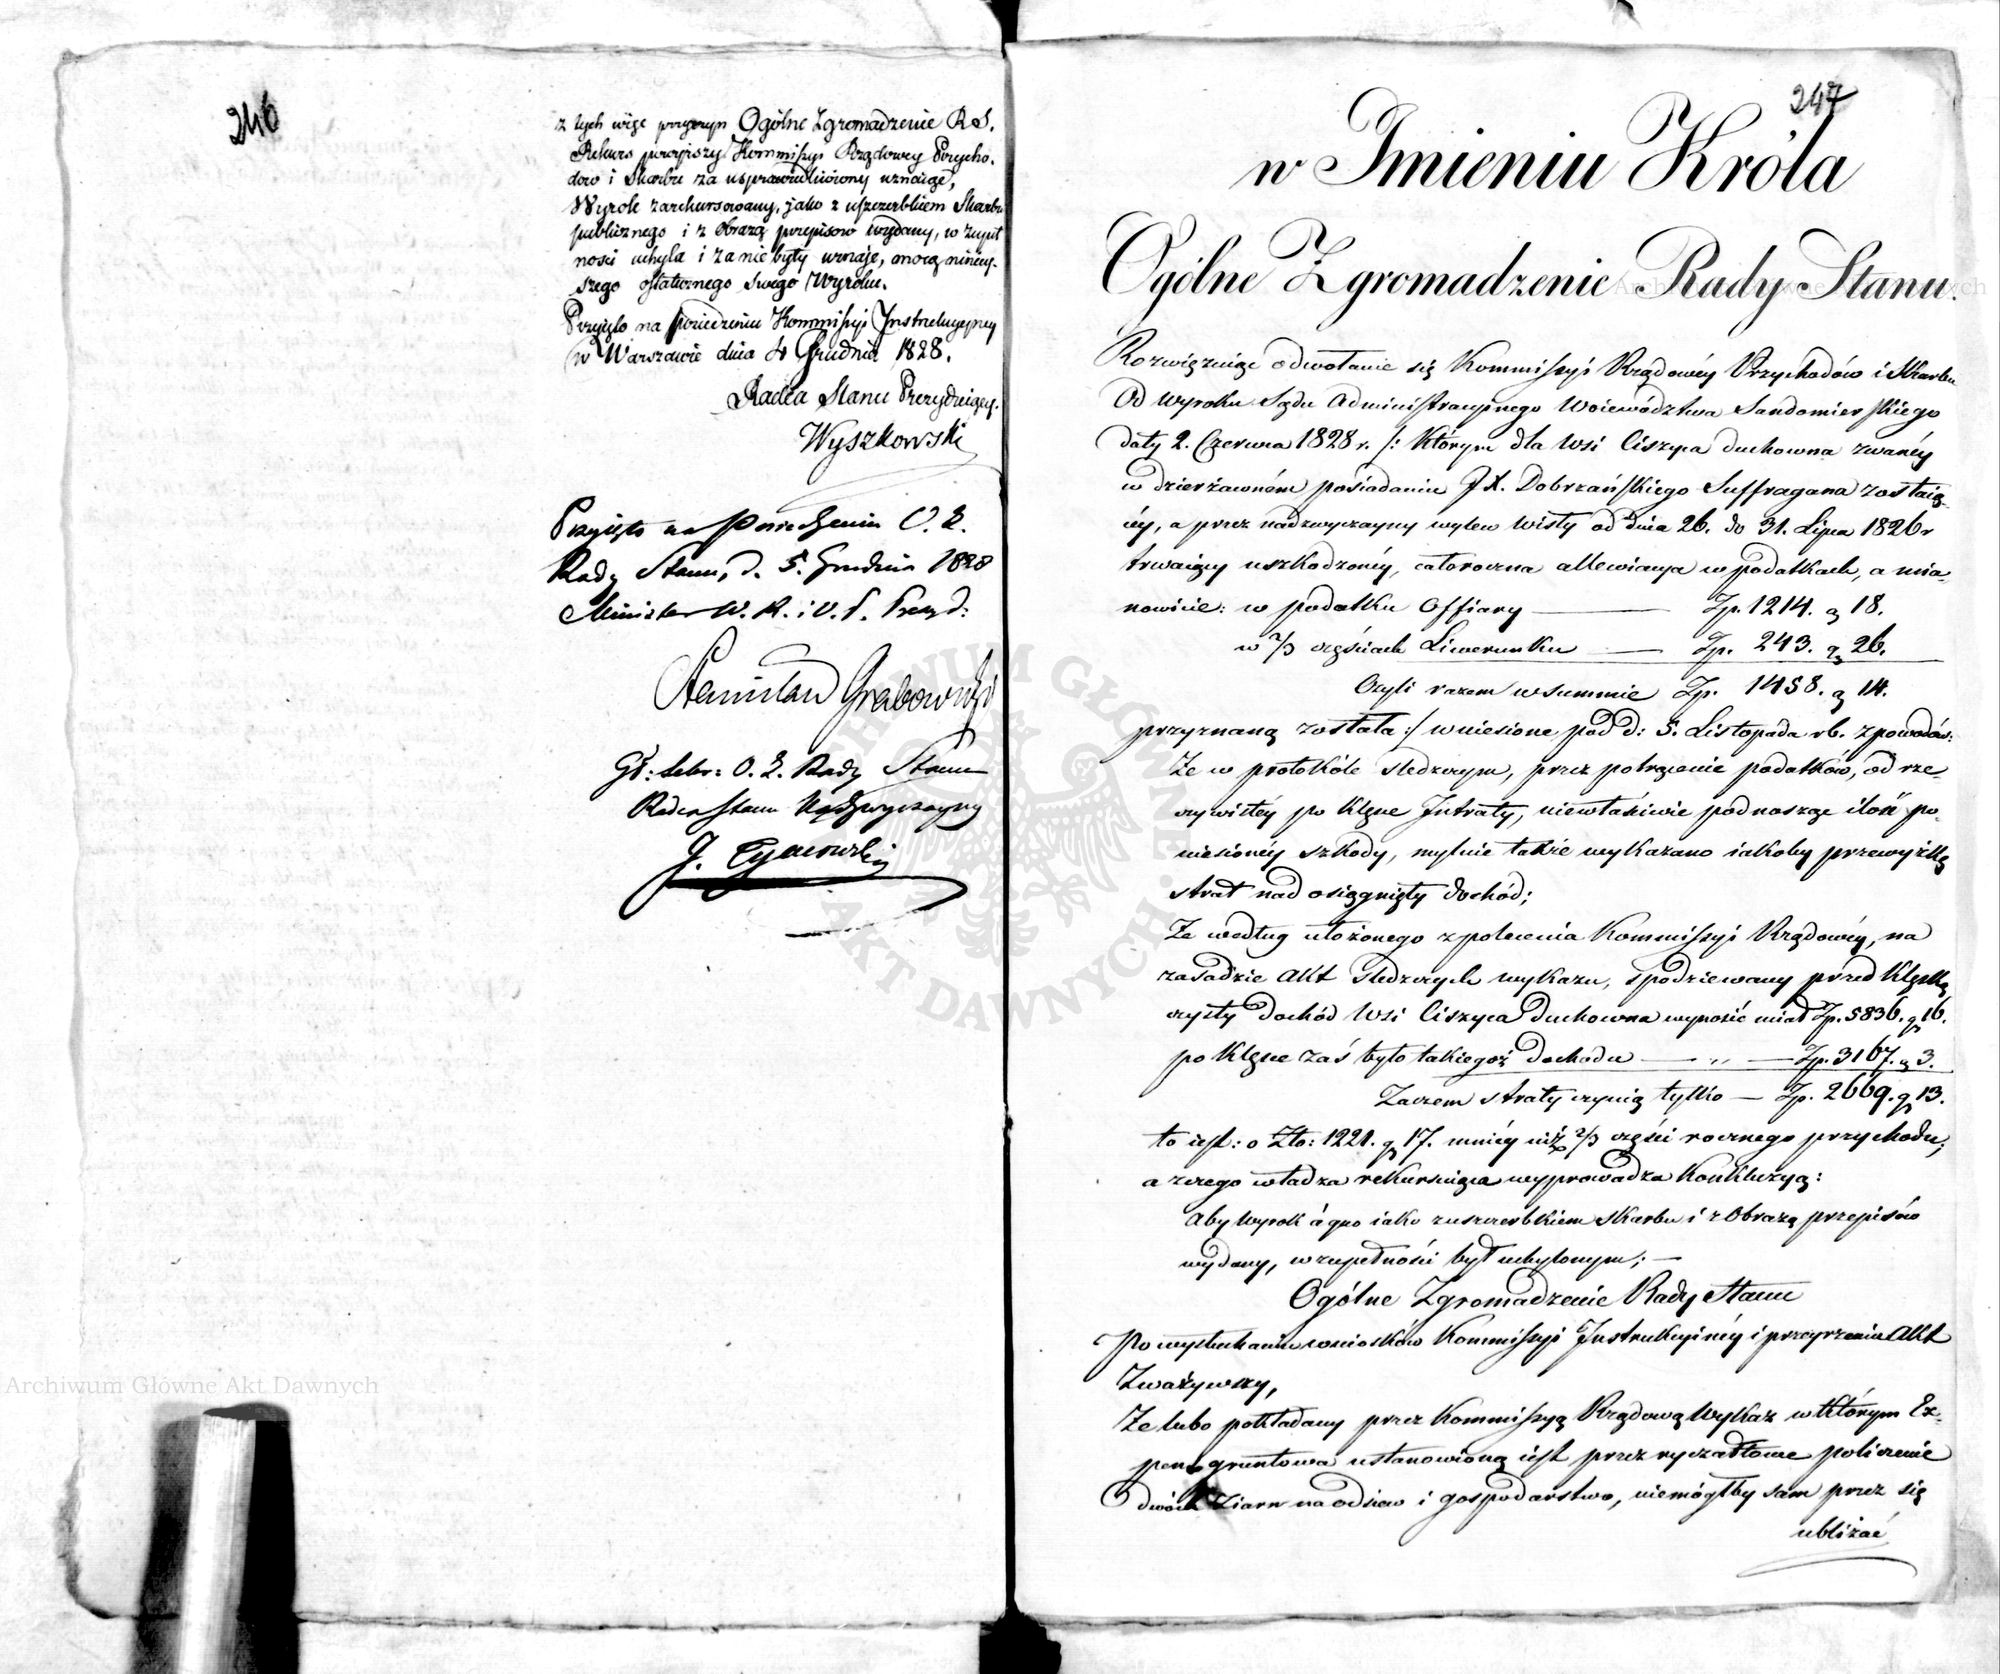 246
z tych więc przyczyn Ogólne Zgromadzenie R S.
Rekurs powyższy Kommissyi Rządowey Przycho-
dow i Skarbu za usprawiedliwiony uznaiąc,
Wyrok zarekursowany, jako z uszczerbkiem Skarbu
publicznego i z obrazą przepisow wydany, w zupeł
ności uchyla i za niebyły uznaje, mocą niniey-
szego ostatecznego swego Wyroku.
Przyięto na posiedzeniu Kommissyi Instrukcyiney
w Warszawie dnia 4 Grudnia 1828.
Radca Stanu Prezyduiący.
Wyszkowski
Przyięto na Posiedzeniu O. Z.
Rady Stanu, d. 5. Grudnia 1828
Minister W. R. i O. P. Prezyd:
Stanisław Grabowski
Gł: Sekr: O. Z. Rady Stanu
Radca Stanu Nadzwyczayny
J.
247
w Imieniu Króla
Ogólne Zgromadzenie Rady Stanu.
Rozwiązuiąc odwołanie się Kommissyi Rządowéy Przychodów i Skarbu
Od wyroku Sądu Administracyinego Woiewództwa Sandomierskiego
daty 2. Czerwca 1828 r. /: Którym dla Wsi Ciszyca duchowna zwanéy
w dzierżawném posiadaniu JX. Dobrzańskiego Suffragana zostaią-
céy, a przez nadzwyczayny wylew Wisły od dnia 26. do 31. Lipca 1826 r
trwaiący uszkodzonéy, całoroczna allewiacya w podatkach, a mia-
nowicie: w podatku Offiary ——— Zp. 1214. g 18.
w 2/3 częściach Liwerunku —— Zp. 243. g 26.
Czyli razem w summie Zp. 1458. g 14.
przyznaną została :/ wniesione pod d: 5. Listopada rb. z powodów:
Że w protokóle śledczym, przez potrącenie podatków, od rze-
czywistéy po klęsce Intraty, niewłaściwie podnosząc ilość po-
niesionéy szkody, mylnie także wykazano iakoby przewyżkę
strat nad osiągnięty dochód;
Że według ułożonego z polecenia Kommissyi Rządowéy, na
zasadzie Akt śledczych wykazu, spodziewany przed klęską
czysty dochód Wsi Ciszyca duchowna wynosić miał Zp. 5836. g 16.
po klęsce zaś było takiegoż dochodu — „ — Zp. 3167. g 3.
Zaczem straty czynią tylko — Zp. 2669. g 13.
to iest: o Zło: 1221. g 17. mniéy niż 2/3 części rocznego przychodu;
a z czego władza rekursuiąca wyprowadza Konkluzyą:
Aby wyrok á quo iako z uszczerbkiem Skarbu i z Obrazą przepisów
wydany, w zupełności był uchylonym; —
Ogólne Zgromadzenie Rady Stanu
Po wysłuchaniu wniosków Kommissyi Instrukcyinéy i przeyrzeniu Akt
Zważywszy,
Że lubo pokładany przez Kommissyą Rządową Wykaz w którym Ex-
pens gruntowa ustanowioną iest przez ryczałtowe policzenie
dwóch Ziarn na odsiew i gospodarstwo, niemógłby sam przez się
ubliżać
Archiwum Główne Akt Dawnych
ARCHIWUM GŁÓWNE AKT DAWNYCH